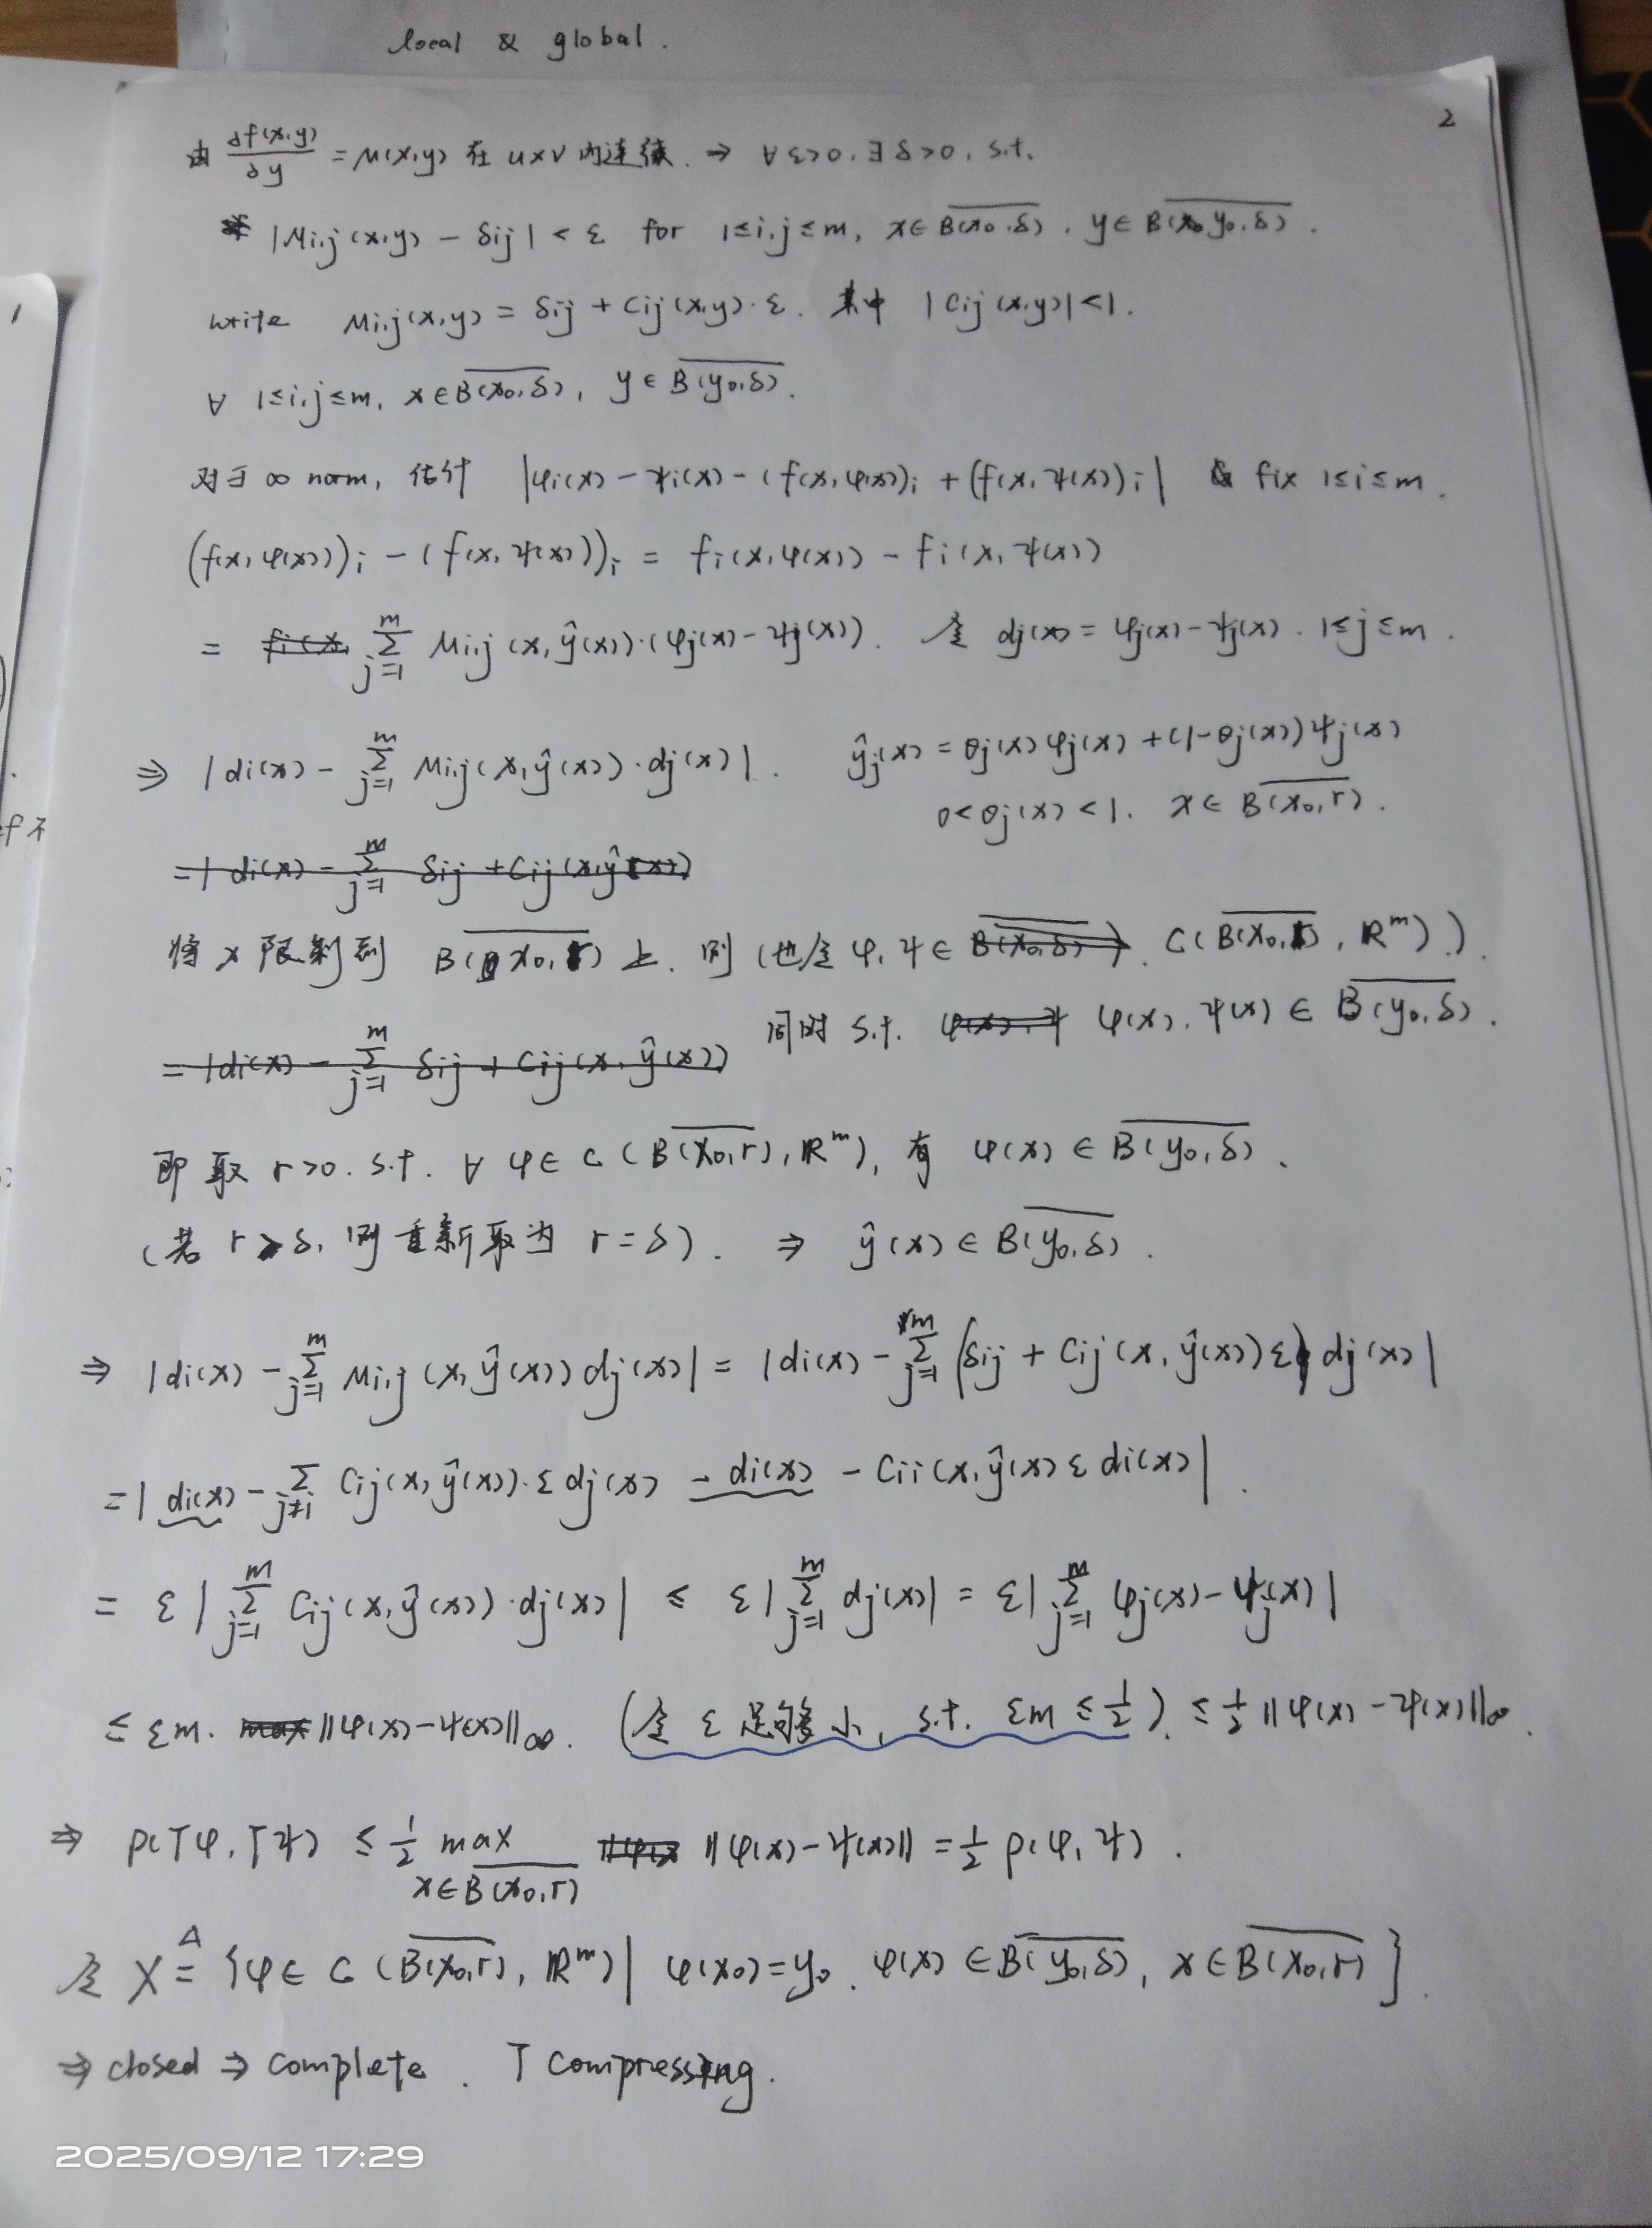 local & global.
2
由 ∂f(x,y)/∂y = M(x,y) 在 U×V 内连续. ⇒ ∀ε>0, ∃δ>0, s.t.
|Mi,j(x,y) - δij| < ε for 1≤i,j≤m, x∈\overline{B(x0,δ)}, y∈\overline{B(y0,δ)}.
write Mi,j(x,y) = δij + Cij(x,y)·ε. 其中 |Cij(x,y)|<1.
∀ 1≤i,j≤m, x∈\overline{B(x0,δ)}, y∈\overline{B(y0,δ)}.
对于 ∞ norm, 估计 |φi(x) - ψi(x) - (f(x,φ(x))i + (f(x,ψ(x))i| & fix 1≤i≤m.
(f(x,φ(x)))i - (f(x,ψ(x)))i = fi(x,φ(x)) - fi(x,ψ(x))
= \sum_{j=1}^{m} Mi,j(x,ŷ(x))·(φj(x)-ψj(x)). 令 dj(x) = φj(x)-ψj(x). 1≤j≤m.
⇒ |di(x) - \sum_{j=1}^{m} Mi,j(x,ŷ(x))·dj(x)|. ŷj(x) = θj(x)φj(x) + (1-θj(x))ψj(x)
0<θj(x)<1. x∈\overline{B(x0,r)}.
= |di(x) - \sum_{j=1}^{m} δij + Cij(x,ŷ(x))
将 x 限制到 \overline{B(x0,r)} 上. 则 (也令 φ,ψ∈ C(\overline{B(x0,r)}, R^m)).
同时 s.t. φ(x),ψ(x)∈\overline{B(y0,δ)}.
= |di(x) - \sum_{j=1}^{m} δij + Cij(x,ŷ(x))
即取 r>0. s.t. ∀φ∈C(\overline{B(x0,r)}, R^m), 有 φ(x)∈\overline{B(y0,δ)}.
(若 r>δ, 则重新取为 r=δ). ⇒ ŷ(x)∈\overline{B(y0,δ)}.
⇒ |di(x) - \sum_{j=1}^{m} Mi,j(x,ŷ(x))dj(x)| = |di(x) - \sum_{j=1}^{m} (δij + Cij(x,ŷ(x))ε) dj(x)|
= |di(x) - \sum_{j≠i} Cij(x,ŷ(x))·ε dj(x) - di(x) - Cii(x,ŷ(x)ε di(x)|.
= ε|\sum_{j=1}^{m} Cij(x,ŷ(x))·dj(x)| ≤ ε|\sum_{j=1}^{m} dj(x)| = ε|\sum_{j=1}^{m} φj(x)-ψj(x)|
≤ εm. ||φ(x)-ψ(x)||∞. (令 ε 足够小, s.t. εm ≤ 1/2). ≤ 1/2||φ(x)-ψ(x)||∞.
⇒ ρ(Tφ,Tψ) ≤ 1/2 \max_{x∈\overline{B(x0,r)}} ||φ(x)-ψ(x)|| = 1/2 ρ(φ,ψ).
令 X ≜ {φ∈C(\overline{B(x0,r)}, R^m) | φ(x0)=y0. φ(x)∈\overline{B(y0,δ)}, x∈\overline{B(x0,r)}}.
⇒ closed ⇒ complete. T compressing.
1
f 不
2025/09/12 17:29